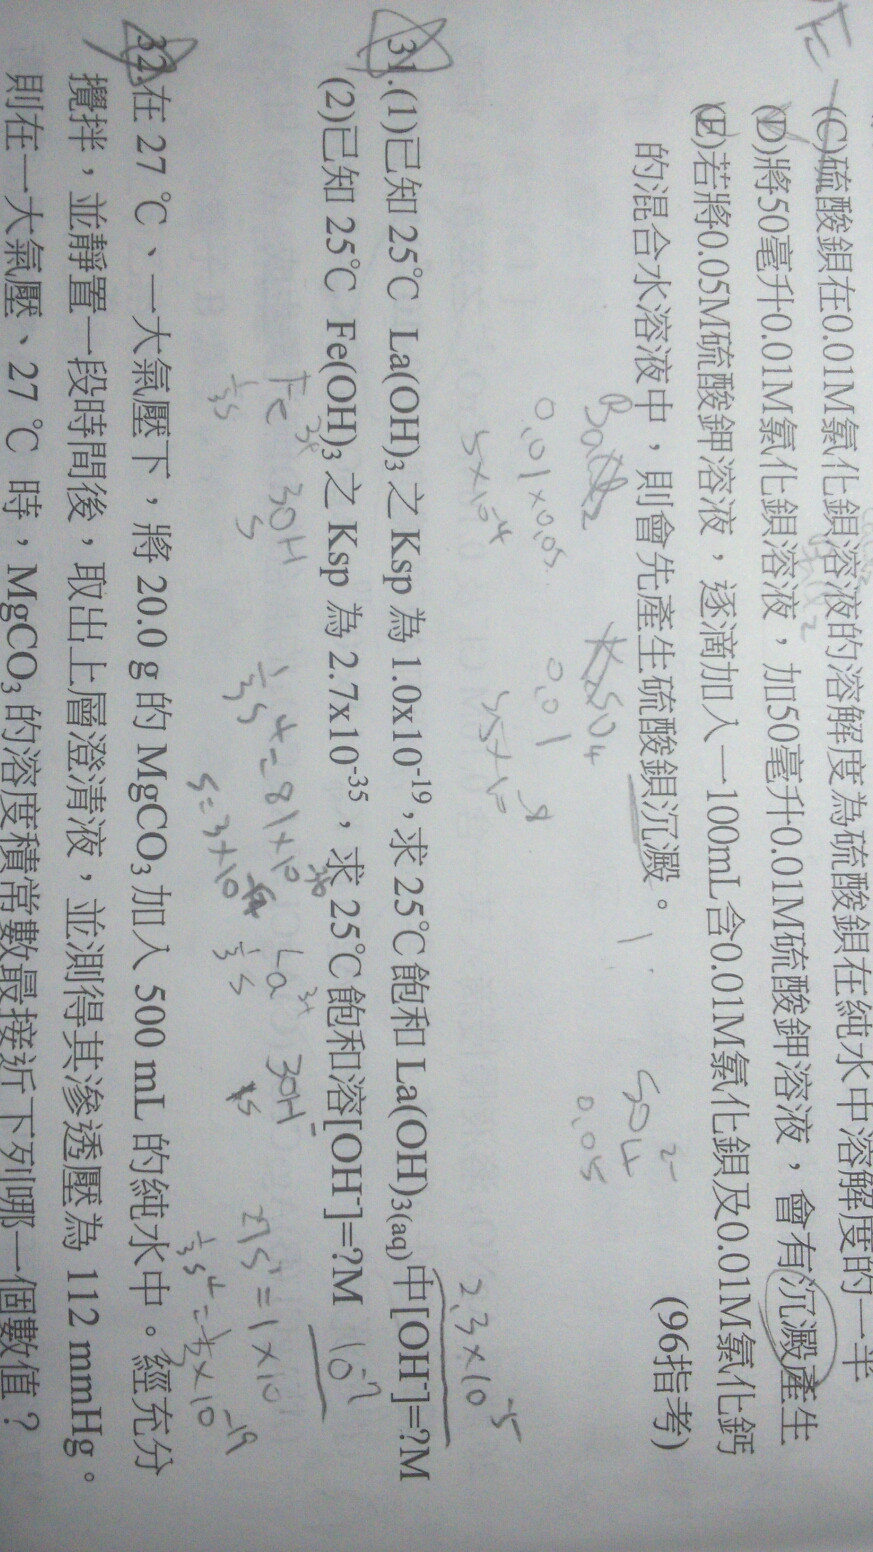 (C)硫酸鋇在0.01M氯化鋇溶液的溶解度為硫酸鋇在純水中溶解度的一半
(D)將50毫升0.01M氯化鋇溶液，加50毫升0.01M硫酸鉀溶液，會有沉澱產生
(E)若將0.05M硫酸鉀溶液，逐滴加入一100mL含0.01M氯化鋇及0.01M氯化鈣
的混合水溶液中，則會先產生硫酸鋇沉澱。 (96指考)
SO4 2-
0.05
0.01×0.05
0.01
5×10-4
2.3×10-5
31.(1)已知 25℃ La(OH)3 之 Ksp 為 1.0x10-19，求 25℃飽和 La(OH)3(aq)中[OH-]=?M
(2)已知 25℃ Fe(OH)3 之 Ksp 為 2.7x10-35，求 25℃飽和溶[OH-]=?M 10-7
Fe3+ 3OH
La3+ 3OH-
1/3 S
S
32.在 27 ℃、一大氣壓下，將 20.0 g 的 MgCO3 加入 500 mL 的純水中。經充分
攪拌，並靜置一段時間後，取出上層澄清液，並測得其滲透壓為 112 mmHg。
則在一大氣壓、27 ℃ 時，MgCO3 的溶度積常數最接近下列哪一個數值？